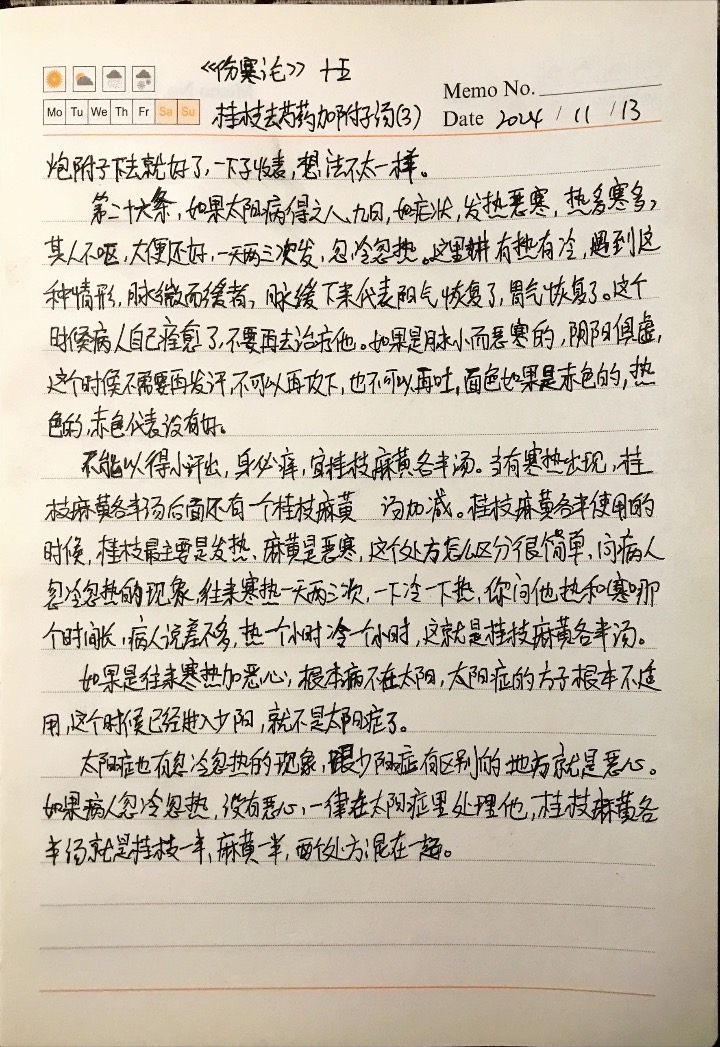 《伤寒论》 十五
Memo No.
Mo Tu We Th Fr Sa Su
桂枝去芍药加附子汤(3)
Date 2024 / 11 / 13
炮附子下去就好了,一下子收表,想法不太一样。
第二十六条,如果太阳病得之八、九日,如症状,发热恶寒,热多寒多,
其人不呕,大便还好,一天两三次发,忽冷忽热。这里讲有热有冷,遇到这
种情形,脉微而缓者,脉缓下来代表阳气恢复了,胃气恢复了。这个
时候病人自己痊愈了,不要再去治疗他。如果是脉小而恶寒的,阴阳俱虚,
这个时候不需要再发汗,不可以再攻下,也不可以再吐,面色如果是赤色的,热
色的,赤色代表没有好。
不能以得小汗出,身必痒,宜桂枝麻黄各半汤。当有寒热出现,桂
枝麻黄各半汤后面还有一个桂枝麻黄 汤加减。桂枝麻黄各半使用的
时候,桂枝最主要是发热,麻黄是恶寒,这个处方怎么区分很简单,问病人
忽冷忽热的现象,往来寒热一天两三次,一下冷一下热,你问他热和寒哪
个时间长,病人说差不多,热一个小时冷一个小时,这就是桂枝麻黄各半汤。
如果是往来寒热加恶心,根本病不在太阳,太阳症的方子根本不适
用,这个时候已经进入少阳,就不是太阳症了。
太阳症也有忽冷忽热的现象,跟少阳症有区别的地方就是恶心。
如果病人忽冷忽热,没有恶心,一律在太阳症里处理他,桂枝麻黄各
半汤就是桂枝一半,麻黄一半,两个处方混在一起。